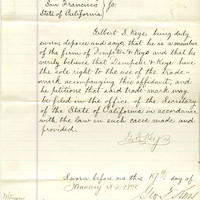 San Francisco } ss.
State of California
Gilbert S. Keys, being duly
sworn deposes and says, that he is a member
of the firm of Dempster & Keys and that he
verily believes that Dempster & Keys have
the sole right to the use of the Trade-
mark accompanying this affidavit; and
he petitions that said trade-mark may
be filed in the office of the Secretary
of the State of California in accordance
with the law in such cases made and
provided.
Keys
Sworn before me this 17th day of
Geo. T.